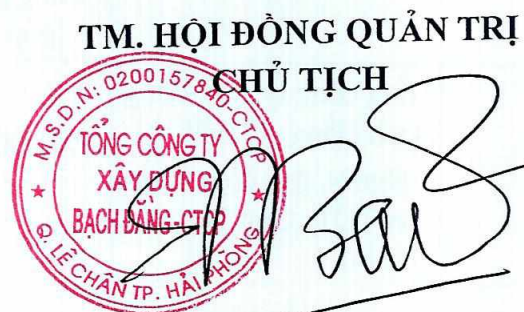 TM. HỘI ĐỒNG QUẢN TRỊ
CHỦ TỊCH
M.S.D.N: 0200157840-CTCP
TỔNG CÔNG TY
XÂY DỰNG
BẠCH ĐẰNG-CTCP
Q. LÊ CHÂN TP. HẢI PHÒNG